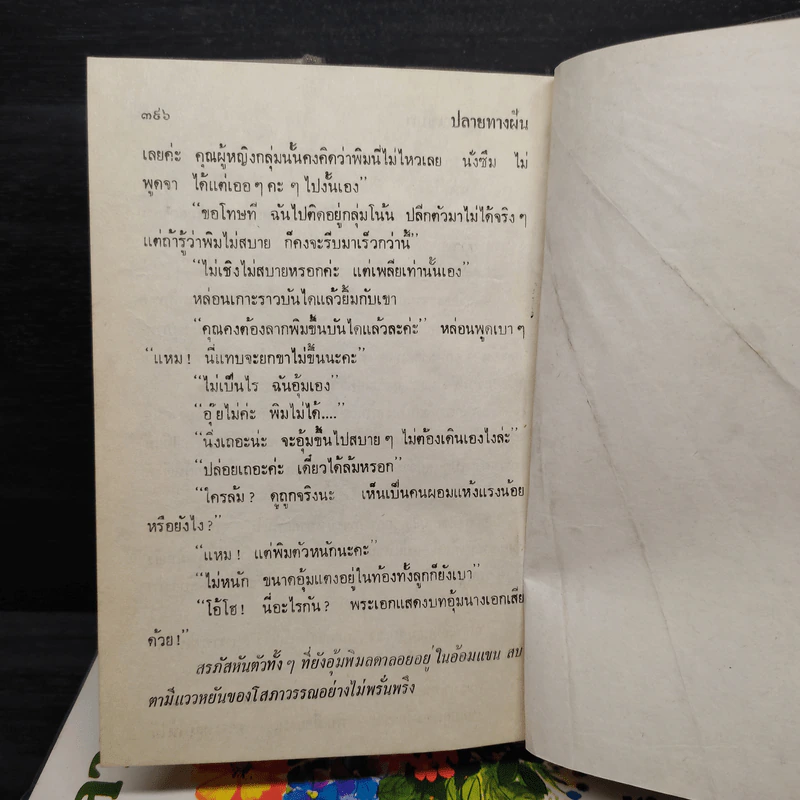 ๓๙๖
ปลายทางฝัน
เลยค่ะ คุณผู้หญิงกลุ่มนั้นคงคิดว่าพิมนี่ไม่ไหวเลย นั่งซึม ไม่
พูดจา ได้แต่เออ ๆ คะ ๆ ไปงั้นเอง”
“ขอโทษที ฉันไปติดอยู่กลุ่มโน้น ปลีกตัวมาไม่ได้จริง ๆ
แต่ถ้ารู้ว่าพิมไม่สบาย ก็คงจะรีบมาเร็วกว่านี้”
“ไม่เชิงไม่สบายหรอกค่ะ แต่เพลียเท่านั้นเอง”
หล่อนเกาะราวบันไดแล้วยิ้มกับเขา
“คุณคงต้องลากพิมขึ้นบันไดแล้วละค่ะ” หล่อนพูดเบา ๆ
“แหม ! นี่แทบจะยกขาไม่ขึ้นนะคะ”
“ไม่เป็นไร ฉันอุ้มเอง”
“อุ๊ยไม่ค่ะ พิมไม่ได้....”
“นิ่งเถอะน่ะ จะอุ้มขึ้นไปสบาย ๆ ไม่ต้องเดินเองไงล่ะ”
“ปล่อยเถอะค่ะ เดี๋ยวได้ล้มหรอก”
“ใครล้ม ? ดูถูกจริงนะ เห็นเป็นคนผอมแห้งแรงน้อย
หรือยังไง ?”
“แหม ! แต่พิมตัวหนักนะคะ”
“ไม่หนัก ขนาดอุ้มแตงอยู่ในท้องทั้งลูกก็ยังเบา”
“โอ้โฮ ! นี่อะไรกัน ? พระเอกแสดงบทอุ้มนางเอกเสีย
ด้วย !”
สรภัสหันตัวทั้ง ๆ ที่ยังอุ้มพิมลตาลอยอยู่ ในอ้อมแขน สบ
ตามีแววหยันของโสภาวรรณอย่างไม่พรั่นพรึง